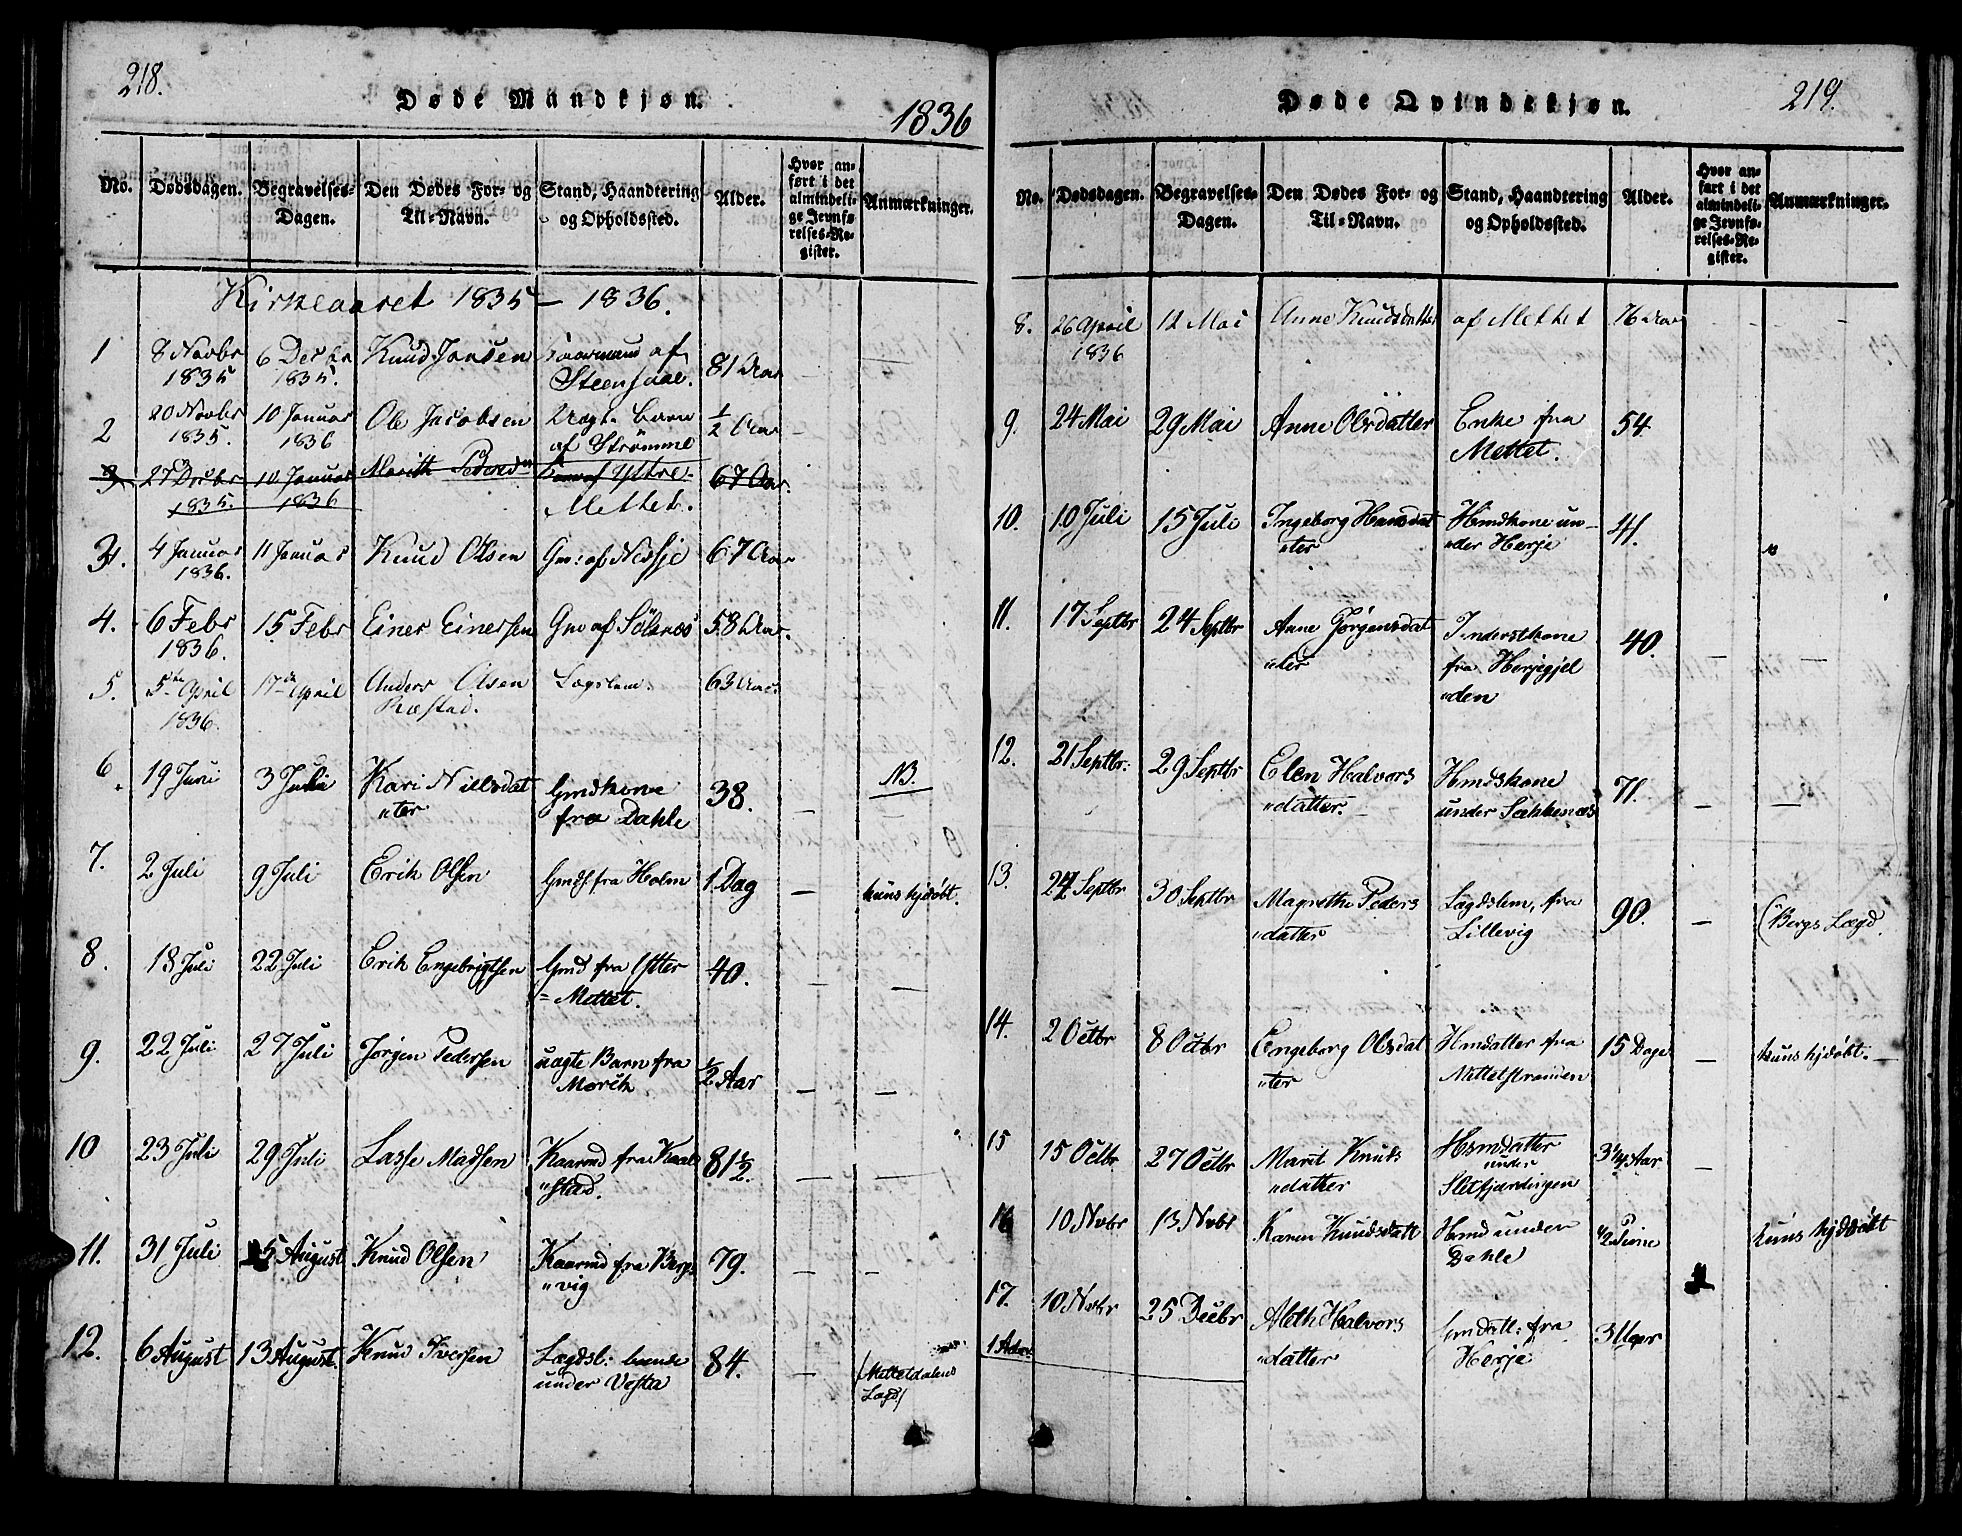 218.
Døde Mandkjøn.
1836
No. Dødsdagen. Begravelses-Dagen. Den Dødes For- og Til-Navn. Stand, Haandtering og Opholdssted. Alder. Hvor anført i det almindelige Jevnførelses-Register. Anmærkninger.
Kirkeaaret 1835 – 1836.
1 8 Novbr 1835 6 Decbr 1835. Knud Jonsen Kaarmand af 81 Aar
2 20 Novbr 1835. 10 Januar 1836 Ole Jacobsen Uægt. Barn af Strømme ½ Aar
3 27 Decbr 1835. 10 Januar 1836 Marith af Yttre Mettet. 67 Aar.
3. 4 Januar 1836. 11 Januar Knud Olsen Gm: af Nesje 67 Aar
4. 6 Febr 1836. 15 Febr Einer Einersen Gm af Sølsnæs 58 Aar.
5. 5te April 1836. 17de April Anders Olsen Ræstad. Lægslem. 63 Aar.
6. 19 Juni 3 Julii Kari Nilsdat "ter Gmdkone fra Dahle 38. – NB.
7. 2 Juli 9 Juli Erik Olsen Gmds. fra Holm 1 Dag – kuns hjdøbt.
8. 18 Juli 22 Juli Erik Engebrigtsen Gmd fra Ytter = Mettet. 40. – –
9. 22 Juli 27 Juli Jørgen Pedersen uægte Barn fra Morck ½ Aar – –
10 23 Juli 29 Juli Lasse Madsen Kaarmd fra "stad. 81½. – –
11. 31 Juli 5 August Knud Olsen Kaarmd fra "vig 79. – –
12. 6 August 13 August Knud Iversen Lægdsl: under 84. – (Mettetdalens Lægd)
219.
Døde Qvindekjøn.
No. Dødsdagen. Begravelses-Dagen. Den Dødes For- og Til-Navn. Stand, Haandtering og Opholdssted. Alder. Hvor anført i det almindelige Jevnførelses-Register. Anmærkninger.
8. 26 April 1836 12 Mai Anne Knudsdatter af Mettet 76 Aar
9. 24 Mai 29 Mai Anne Olsdatter Enke fra Mettet. 54
10. 10 Juli 15 Juli Ingeborg Hansdat "ter Hmdkone un- "der Herje 41.
11. 17 Septbr 24 Septbr Anne Jørgensdat "ter Inderstkone fra Herjegjel "den 40. – –
12. 21 Septbr: 29 Septbr Elen Halvors "datter. Hmdskone under Sækkenæs 71. – –
13. 24 Septbr 30 Septbr Magrethe Peders "datter Lægdslem, fra Lillevig 90. – (Bergs Lægd.
14. 2 Octbr 8 Octbr Engeborg Olsdat "ter Hmdatter fra Mettetstranden 15 Dage – kuns hjdøbt. –
15 15 Octbr 27 Octbr Marit Knuds "datter Hsmdatter under Sletfjerdingen 3¼ Aar –
16 10 Nvbr 13 Nvbr Karen Knudsdatt Hmd under Dahle ½ Time kuns hjddøbt
17. 10 Nvbr 25 Decbr Meth Halvors "datter Gmdatt: fra Herje 3 Uger